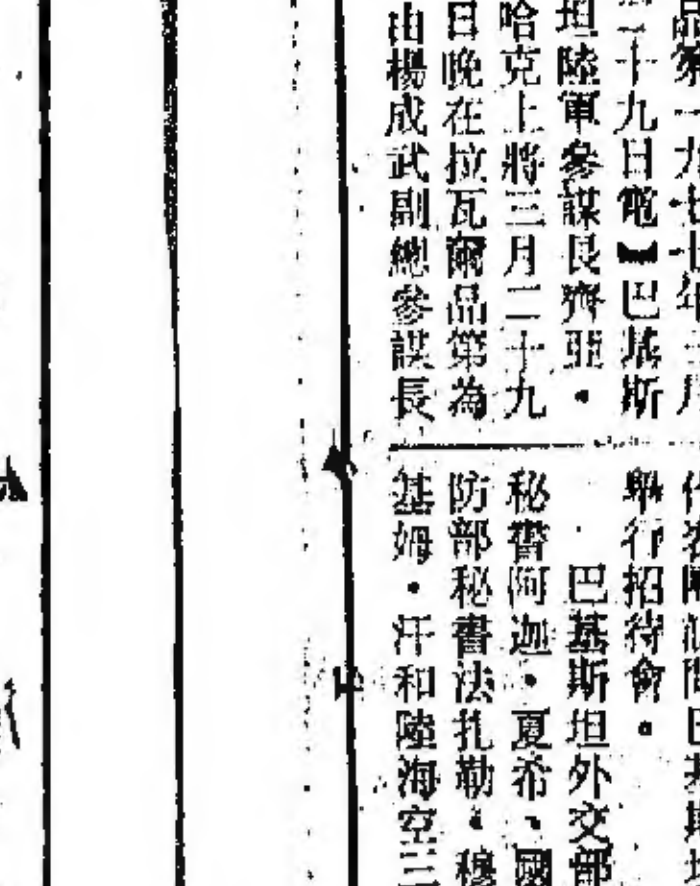 品第一九七七年三月
二十九日電】巴基斯
坦陸軍參謀長齊亞・
哈克上將三月二十九
日晚在拉瓦爾品第為
由楊成武副總參謀長
訪問巴基斯坦
舉行招待會。
巴基斯坦外交部
秘書阿迦・夏希、國
防部秘書法扎勒・穆
基姆・汗和陸海空三